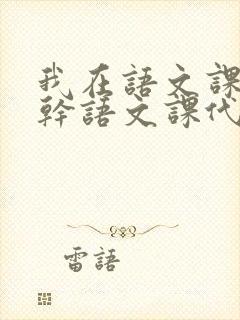 我在語文課
幹語文課代
雷語